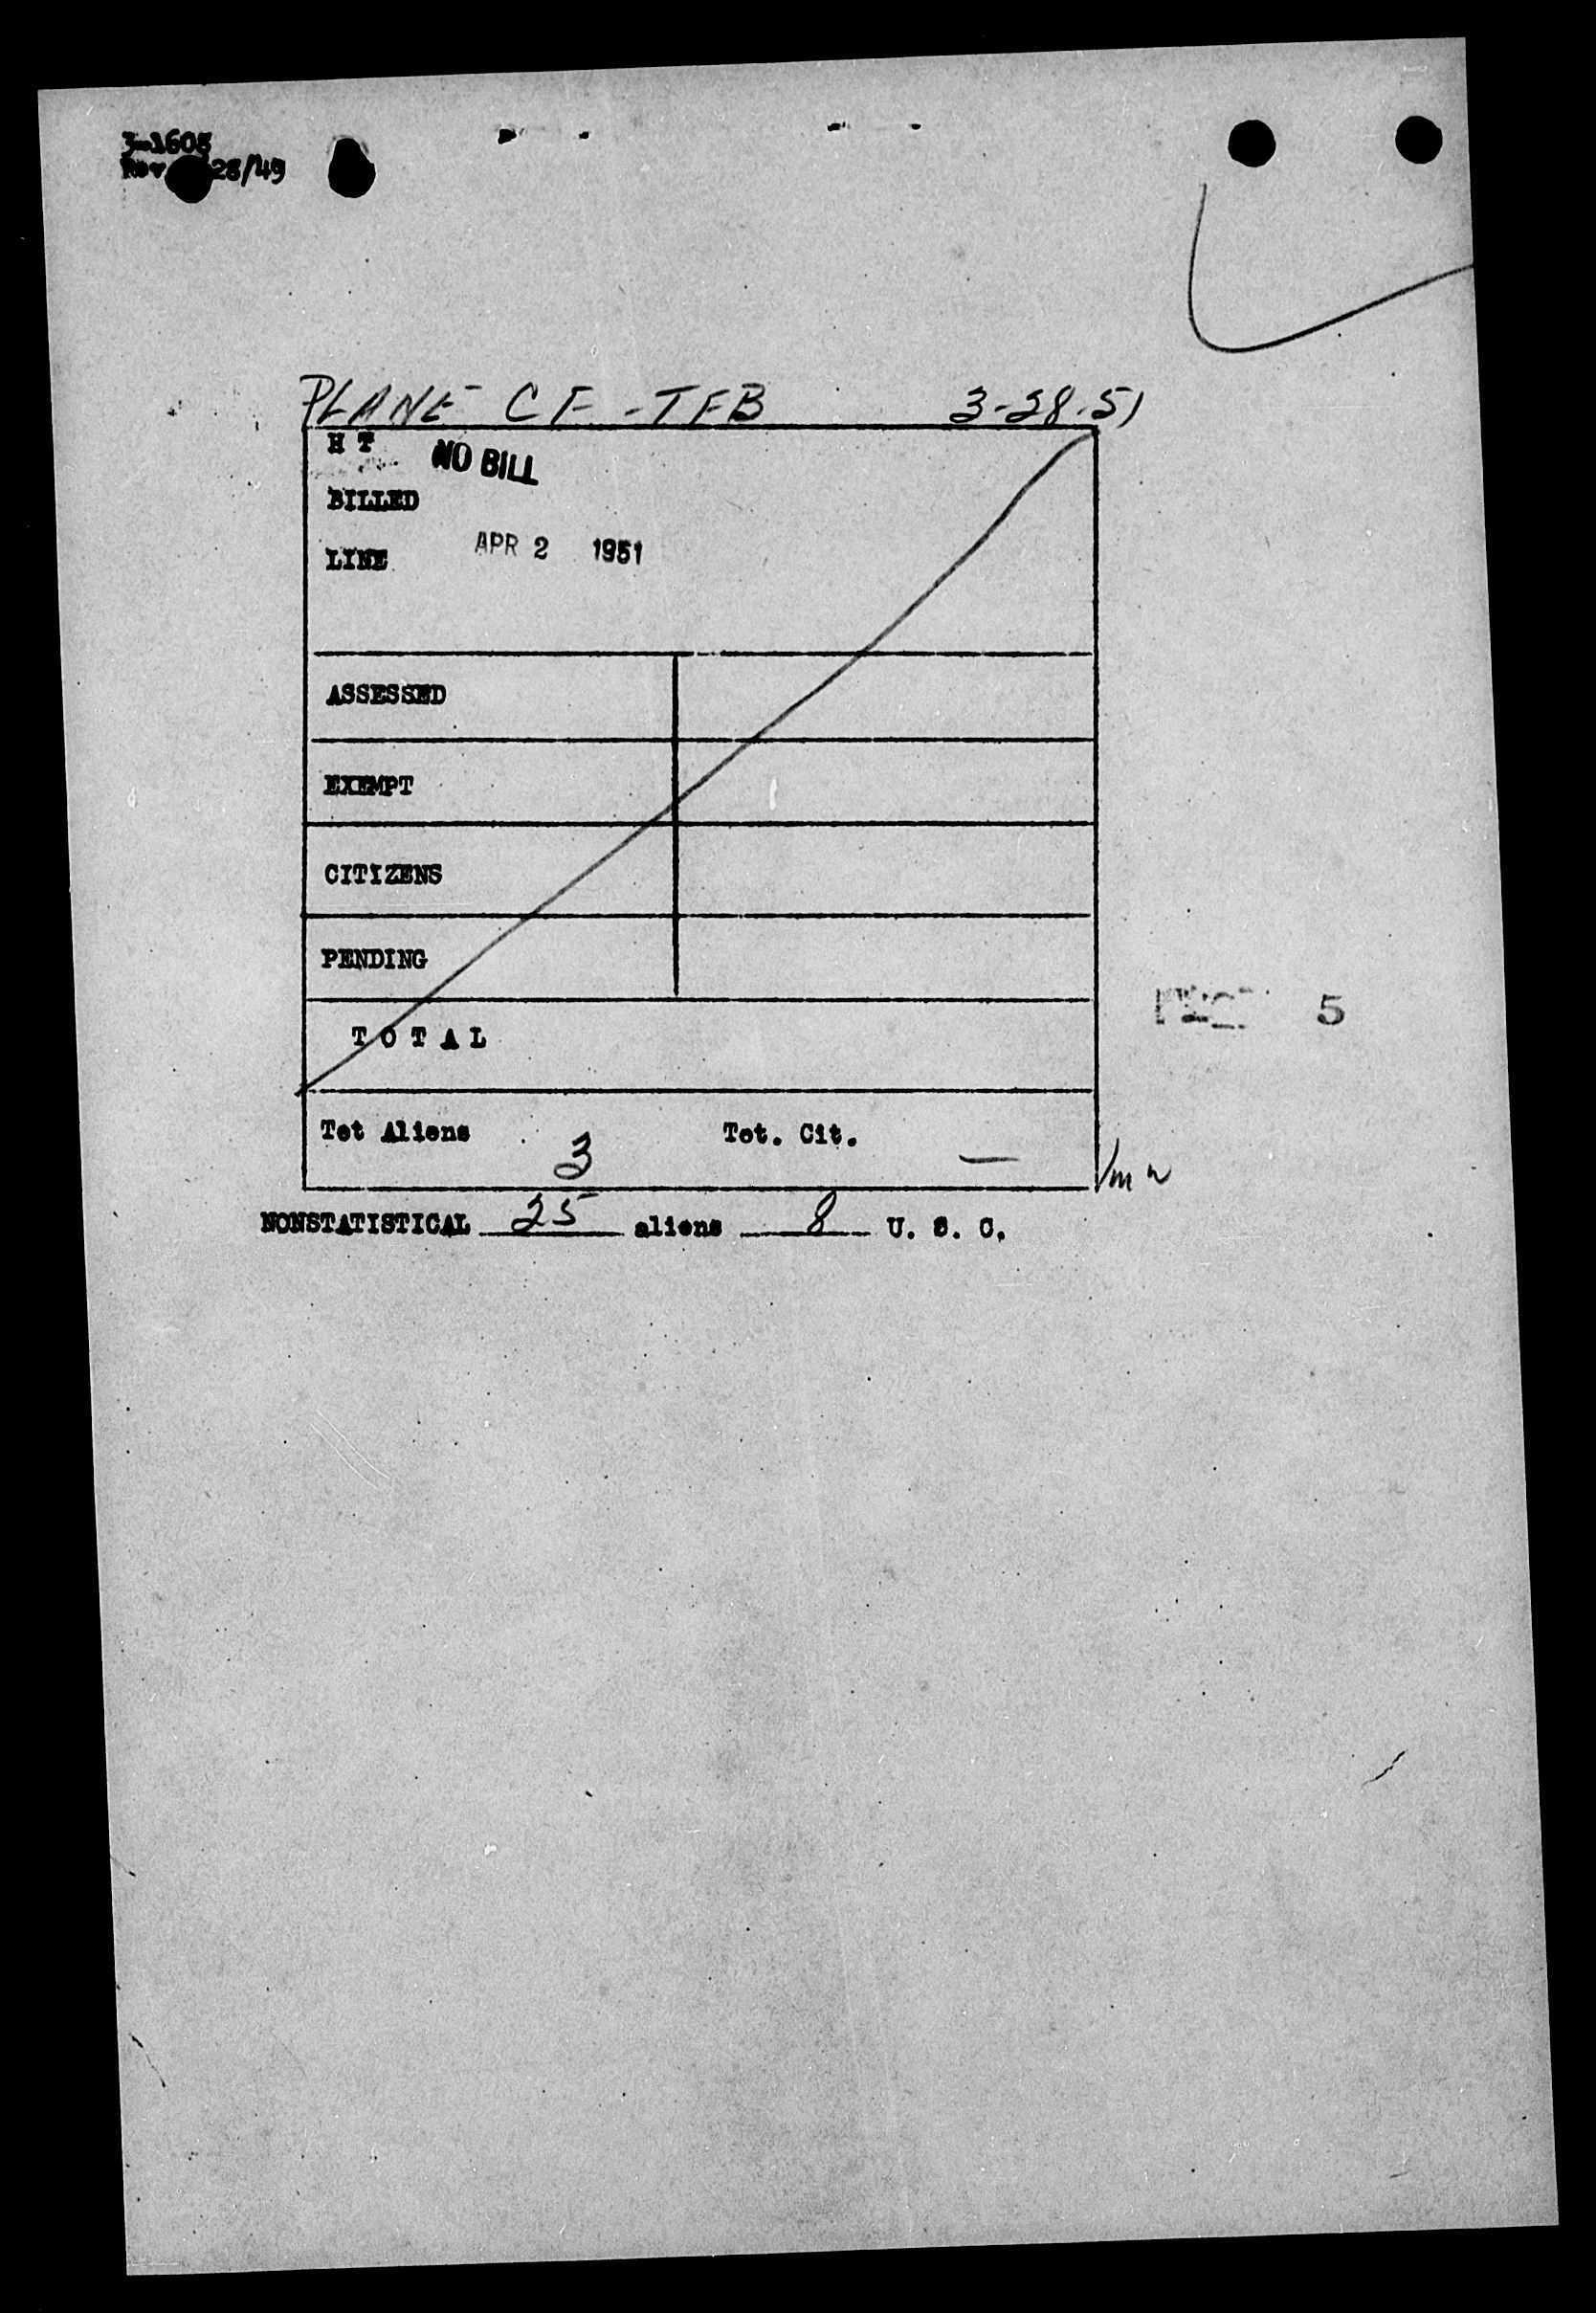 3-1605
28/49
PLANE CF-TFB 3-28-51
H T NO BILL
BILLED
LINE APR 2 1951
ASSESSED
EXEMPT
CITIZENS
PENDING
TOTAL
Tot Aliens 3 Tot. Cit. —
NONSTATISTICAL 25 aliens 8 U. S. C.
5